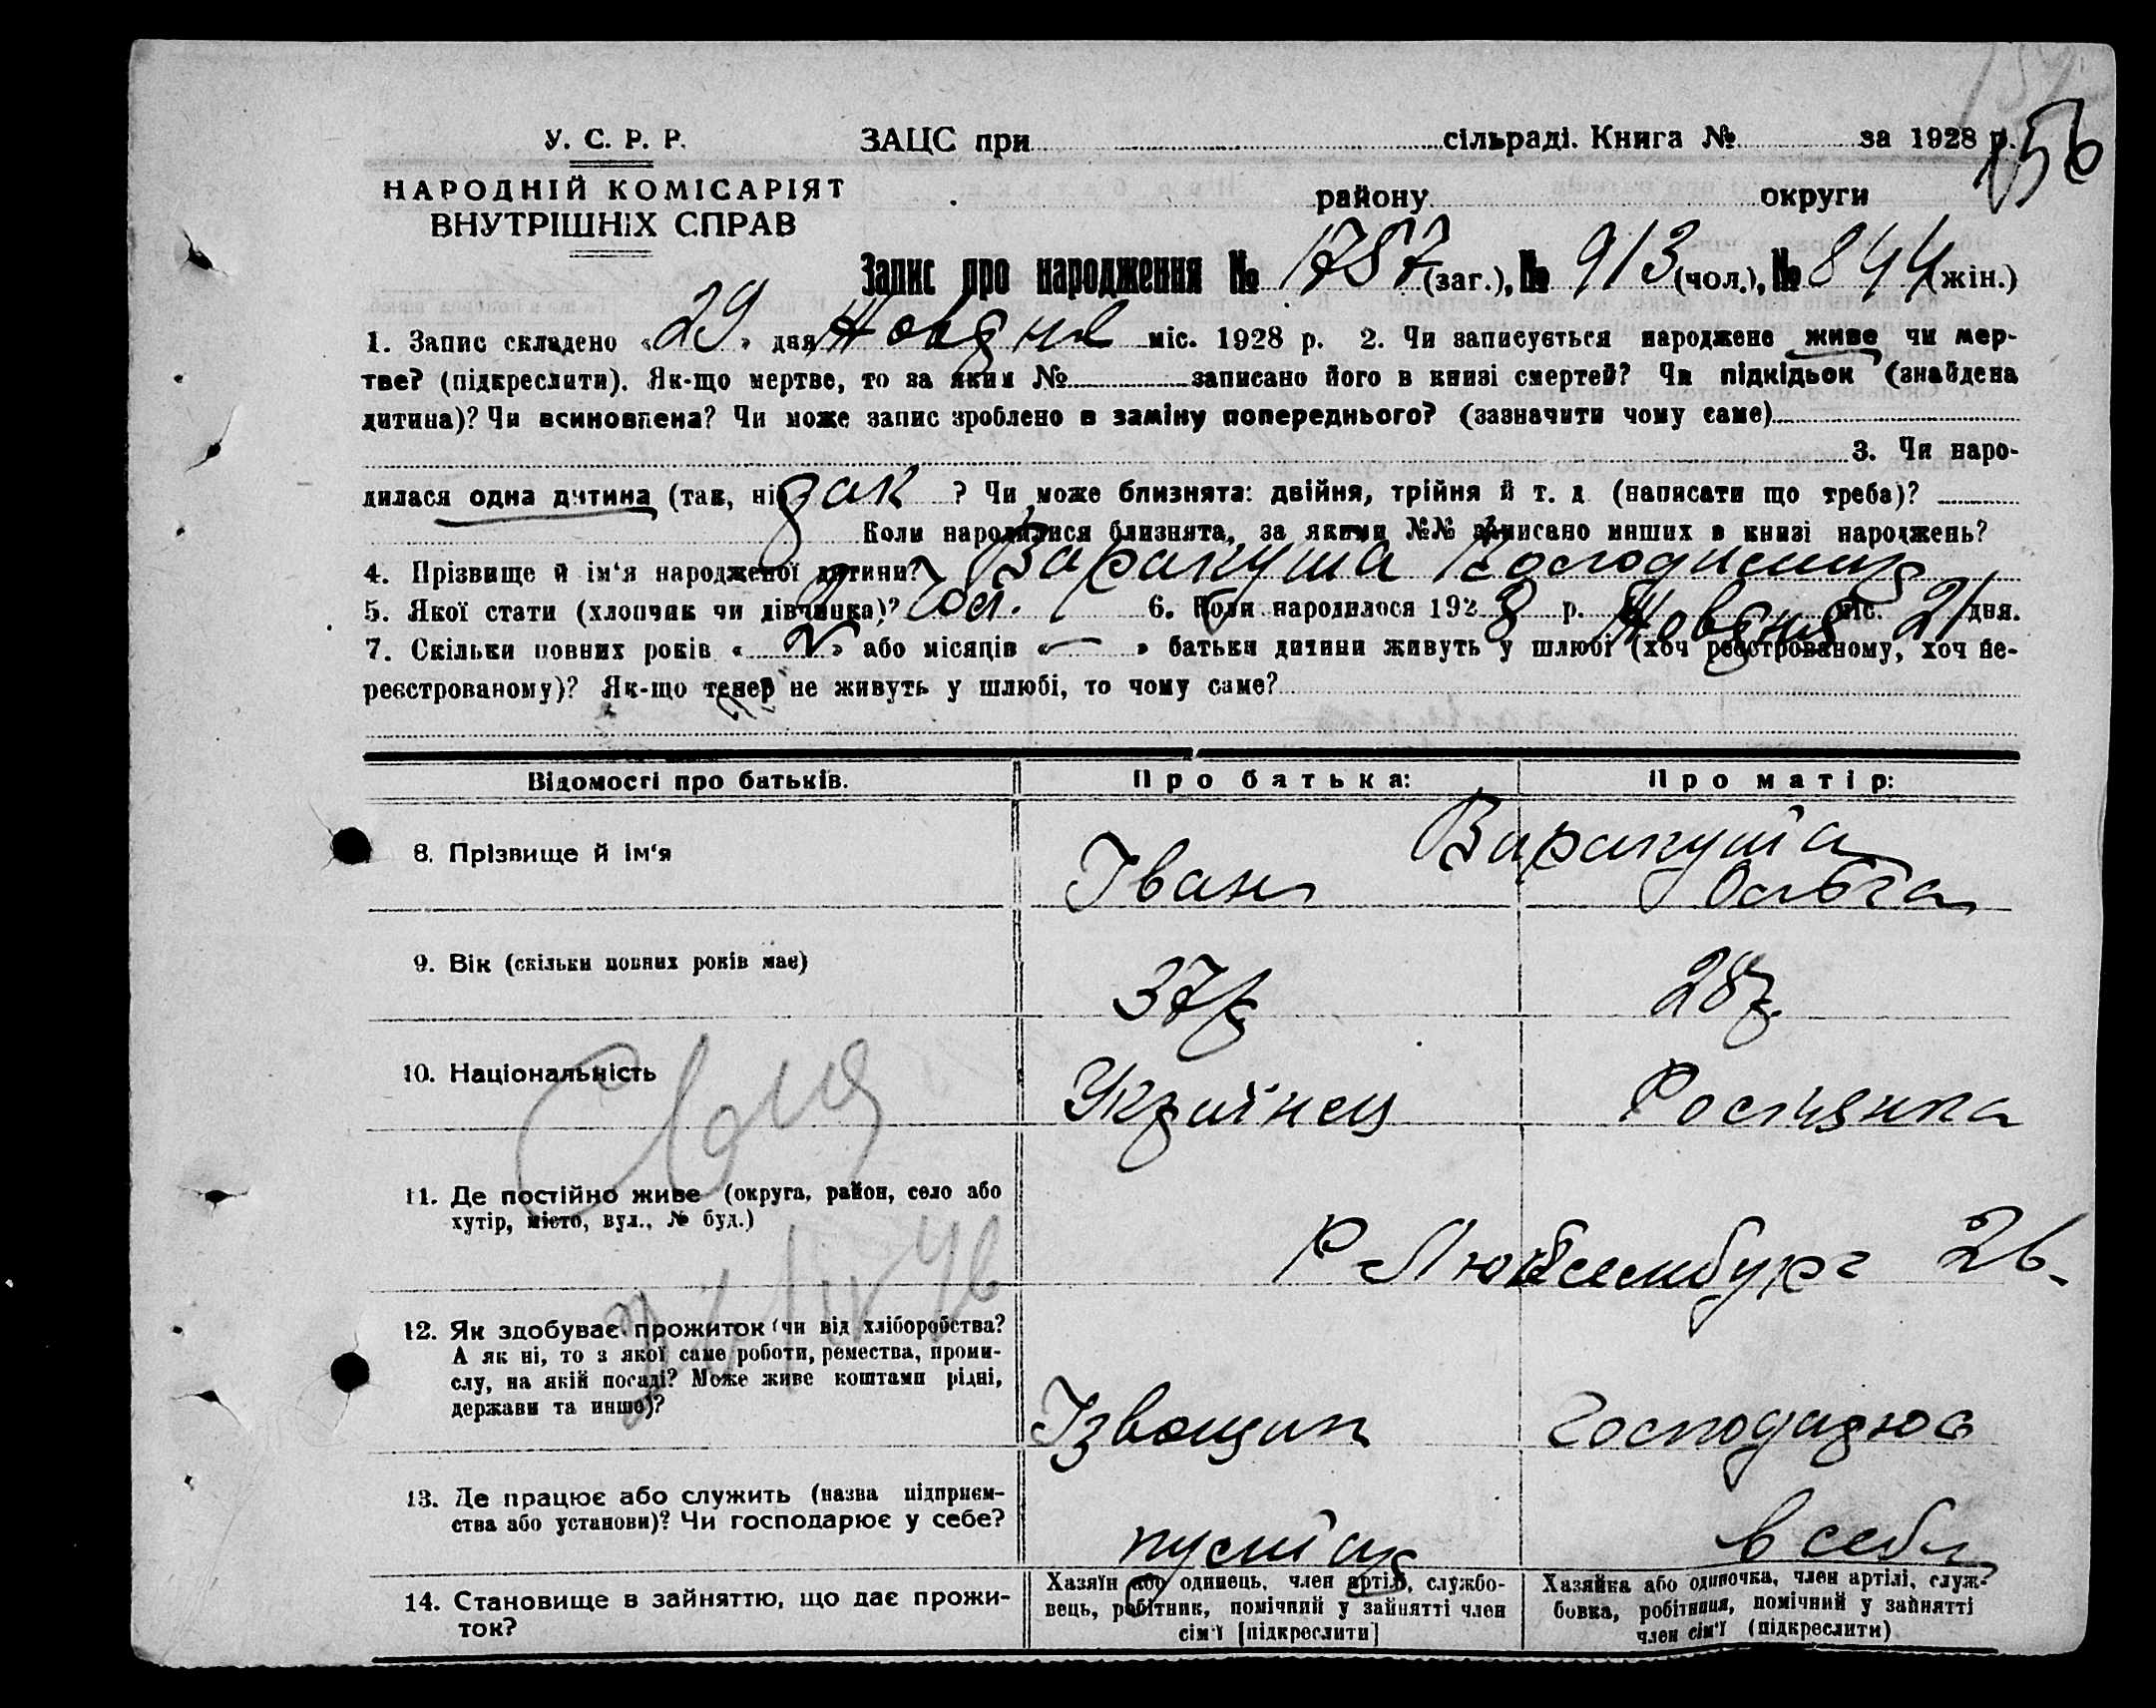 156
У. С. Р. Р.
ЗАЦС при сільраді. Книга № за 1928 р.
НАРОДНІЙ КОМІСАРІЯТ
ВНУТРІШНІХ СПРАВ
району округи
Запис про народження № 1787 (заг.), № 913 (чол.), № 844 (жін.)
1. Запис складено «29» дня Жовтня міс. 1928 р. 2. Чи записується народжене живе чи мер-
тве? (підкреслити). Як-що мертве, то за яким № записано його в книзі смертей? Чи підкідьок (знайдена
дитина)? Чи всиновлена? Чи може запис зроблено в заміну попереднього? (зазначити чому саме)
3. Чи наро-
дилася одна дитина (так, ні) так ? Чи може близнята: двійня, трійня й т. д (написати що треба)?
Коли народилися близнята, за якими №№ записано инших в книзі народжень?
4. Прізвище й ім'я народженої дитини? Варакута
5. Якої стати (хлопчик чи дівчинка)? Чол. 6. Коли народилося 1928 р. Жовтня міс. 21 дня.
7. Скільки повних років « » або місяців «—» батьки дитини живуть у шлюбі (хоч реєстрованому, хоч не-
реєстрованому)? Як-що тепер не живуть у шлюбі, то чому саме?
Відомості про батьків. Про батька: Про матір:
8. Прізвище й ім'я Варакута
Іван Ольга
9. Вік (скільки повних років має) 37р 28р.
10. Національність Українец Росіянка
11. Де постійно живе (округа, район, село або
хутір, місто, вул., № буд.)
Р Люксембург 26.
12. Як здобуває прожиток (чи від хліборобства?
А як ні, то з якої саме роботи, ремества, проми-
слу, на якій посаді? Може живе коштами рідні,
держави та инше)?
Ізвощик Господарює
13. Де працює або служить (назва підприєм-
ства або установи)? Чи господарює у себе?
в себе
14. Становище в зайняттю, що дає прожи-
ток?
Хазяїн або одинець, член артілі, службо-
вець, робітник, помічний у зайнятті член
сім'ї [підкреслити]
Хазяйка або одиночка, член артілі, служ-
бовка, робітниця, помічний у зайнятті
член сім'ї (підкреслити)